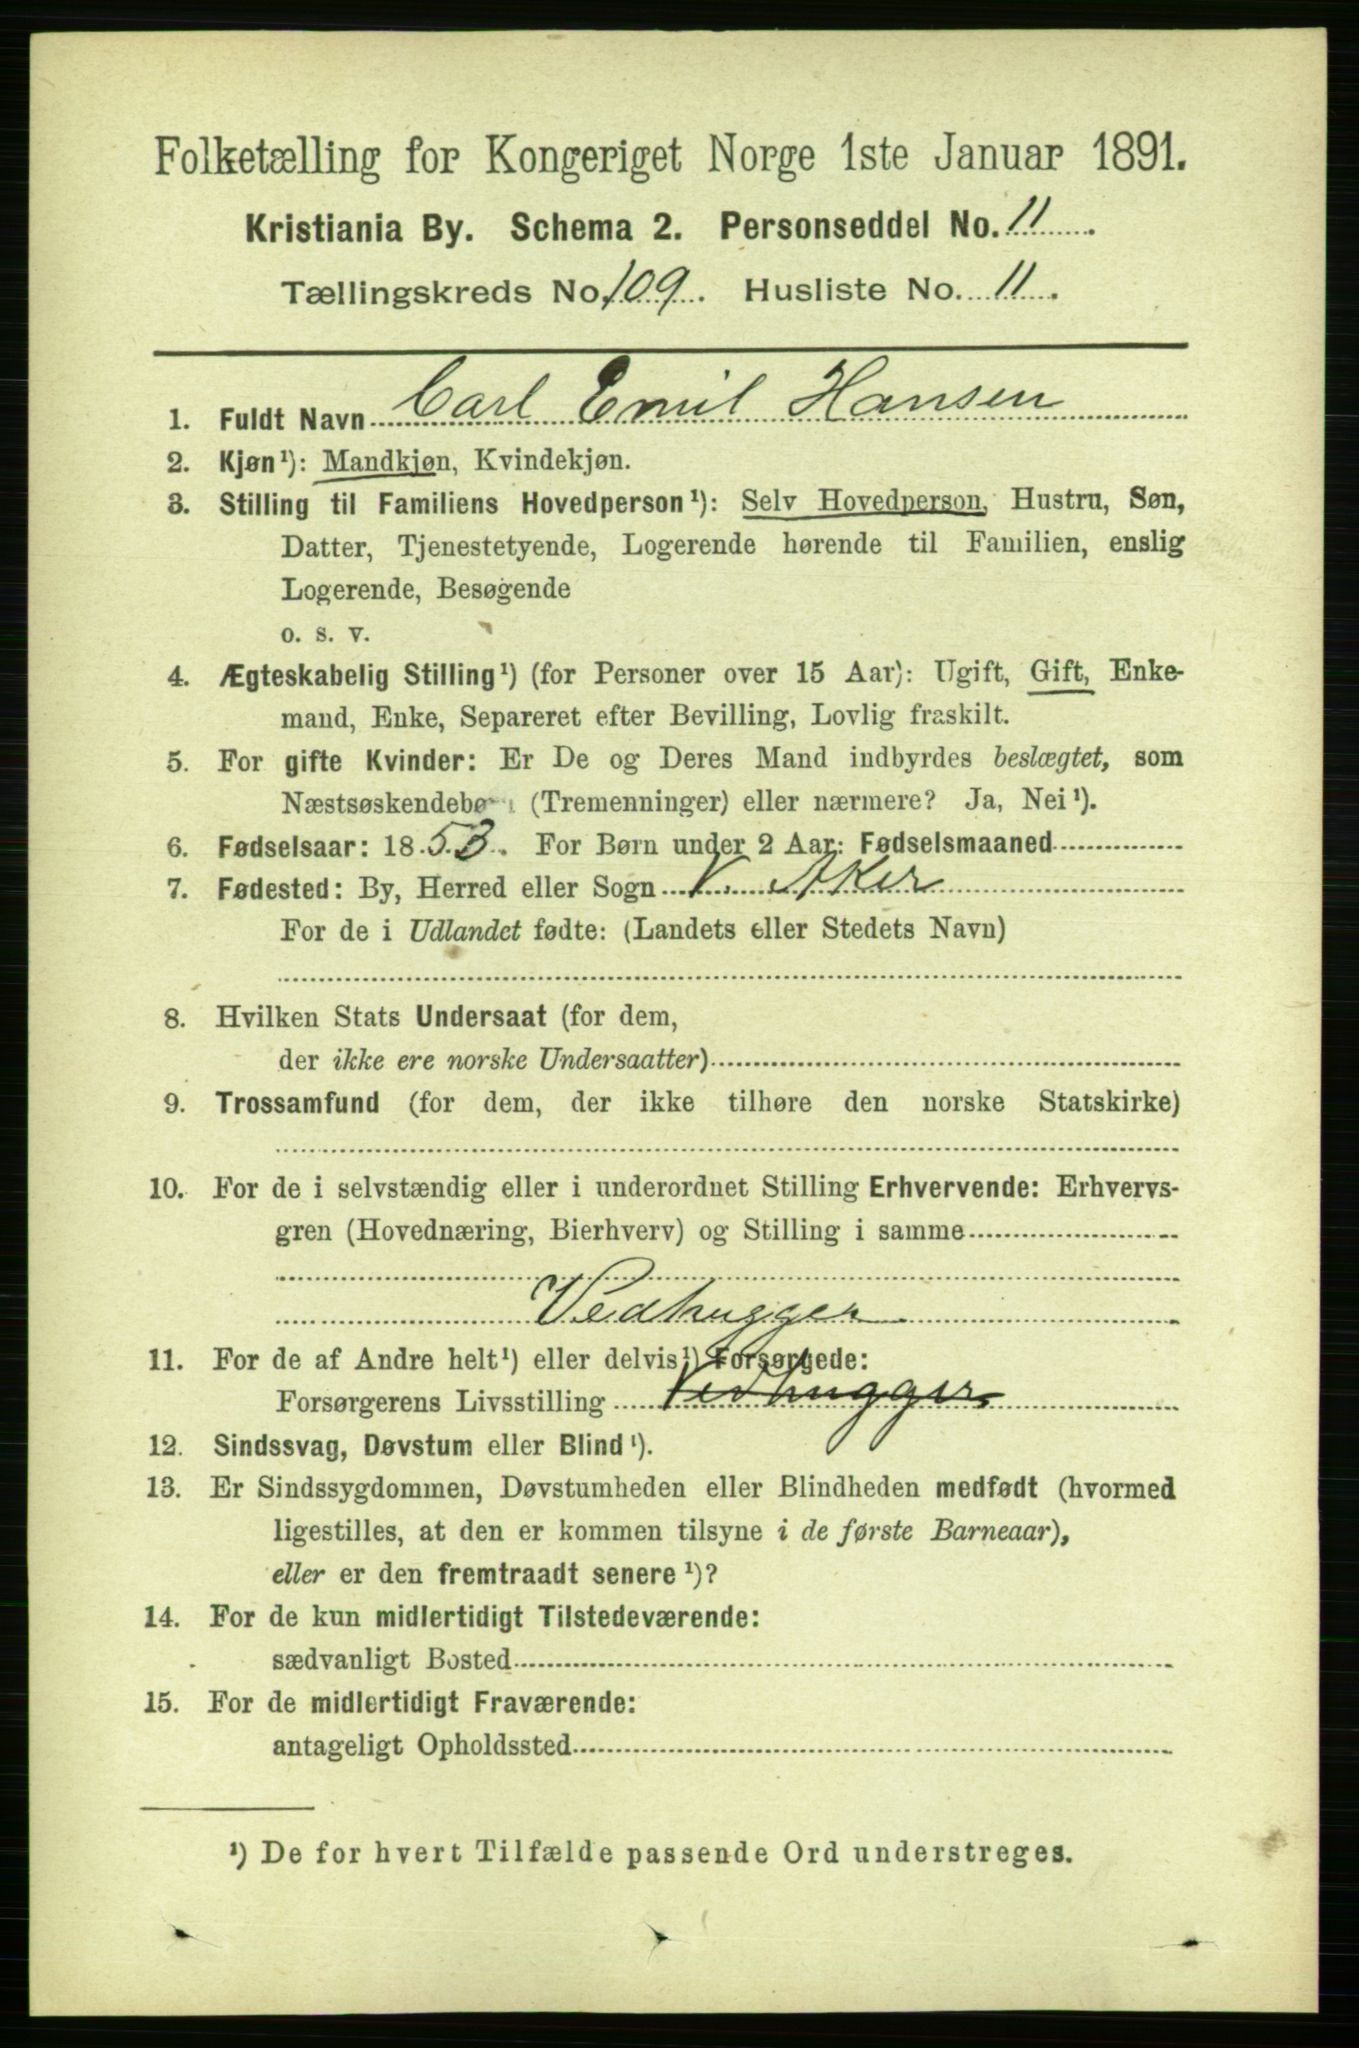 Folketælling for Kongeriget Norge 1ste Januar 1891.
Kristiania By. Schema 2. Personseddel No. 11.
Tællingskreds No. 109. Husliste No. 11.
1. Fuldt Navn Carl Emil Hansen
2. Kjøn¹): Mandkjøn, Kvindekjøn.
3. Stilling til Familiens Hovedperson¹): Selv Hovedperson, Hustru, Søn,
Datter, Tjenestetyende, Logerende hørende til Familien, enslig
Logerende, Besøgende
o. s. v.
4. Ægteskabelig Stilling¹) (for Personer over 15 Aar): Ugift, Gift, Enke-
mand, Enke, Separeret efter Bevilling, Lovlig fraskilt.
5. For gifte Kvinder: Er De og Deres Mand indbyrdes beslægtet, som
Næstsøskendebø (Tremenninger) eller nærmere? Ja, Nei¹).
6. Fødselsaar: 1853. For Børn under 2 Aar: Fødselsmaaned
7. Fødested: By, Herred eller Sogn V. Aker
For de i Udlandet fødte: (Landets eller Stedets Navn)
8. Hvilken Stats Undersaat (for dem,
der ikke ere norske Undersaatter)
9. Trossamfund (for dem, der ikke tilhøre den norske Statskirke)
10. For de i selvstændig eller i underordnet Stilling Erhvervende: Erhvervs-
gren (Hovednæring, Bierhverv) og Stilling i samme
Vedhugger
11. For de af Andre helt¹) eller delvis¹) Forsørgede:
Forsørgerens Livsstilling Vedhugger
12. Sindssvag, Døvstum eller Blind¹).
13. Er Sindssygdommen, Døvstumheden eller Blindheden medfødt (hvormed
ligestilles, at den er kommen tilsyne i de første Barneaar),
eller er den fremtraadt senere¹)?
14. For de kun midlertidigt Tilstedeværende:
sædvanligt Bosted
15. For de midlertidigt Fraværende:
antageligt Opholdssted
¹) De for hvert Tilfælde passende Ord understreges.